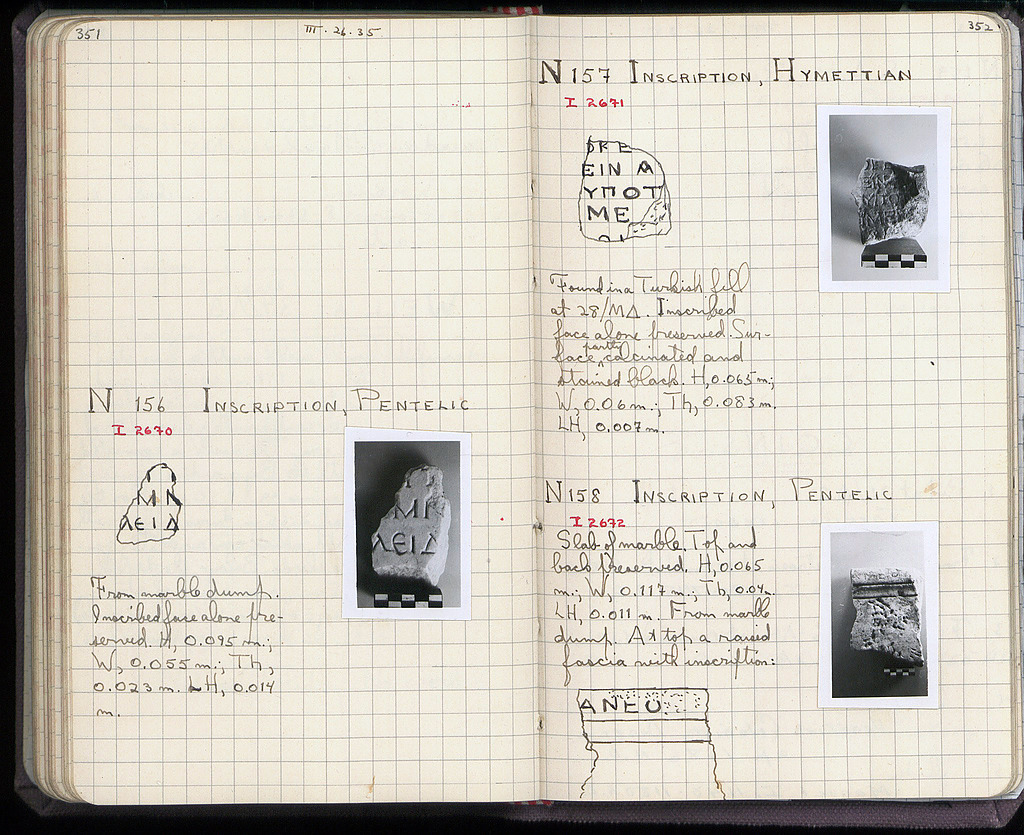 351
III. 26. 35
N 156 INSCRIPTION, PENTELIC
I 2670
ΜΚ
ΛΕΙΔ
From marble dump.
Inscribed face alone pre-
served. H, 0.095 m.;
W, 0.055 m.; Th,
0.023 m. LH, 0.014
m.
352
N 157 INSCRIPTION, HYMETTIAN
I 2671
ΚΕ
ΕΙΝ
ΥΠΟΤ
ΜΕ
Found in a Turkish fill
at 28/ΜΔ. Inscribed
face alone preserved. Sur-
face partly calcinated and
stained black. H, 0.065 m.;
W, 0.06 m.; Th, 0.083 m.
LH, 0.007 m.
N 158 INSCRIPTION, PENTELIC
I 2672
Slab of marble. Top and
back preserved. H, 0.065
m.; W, 0.117 m.; Th, 0.04.
LH, 0.011 m. From marble
dump. At top a raised
fascia with inscription:
ΑΝΕΟ